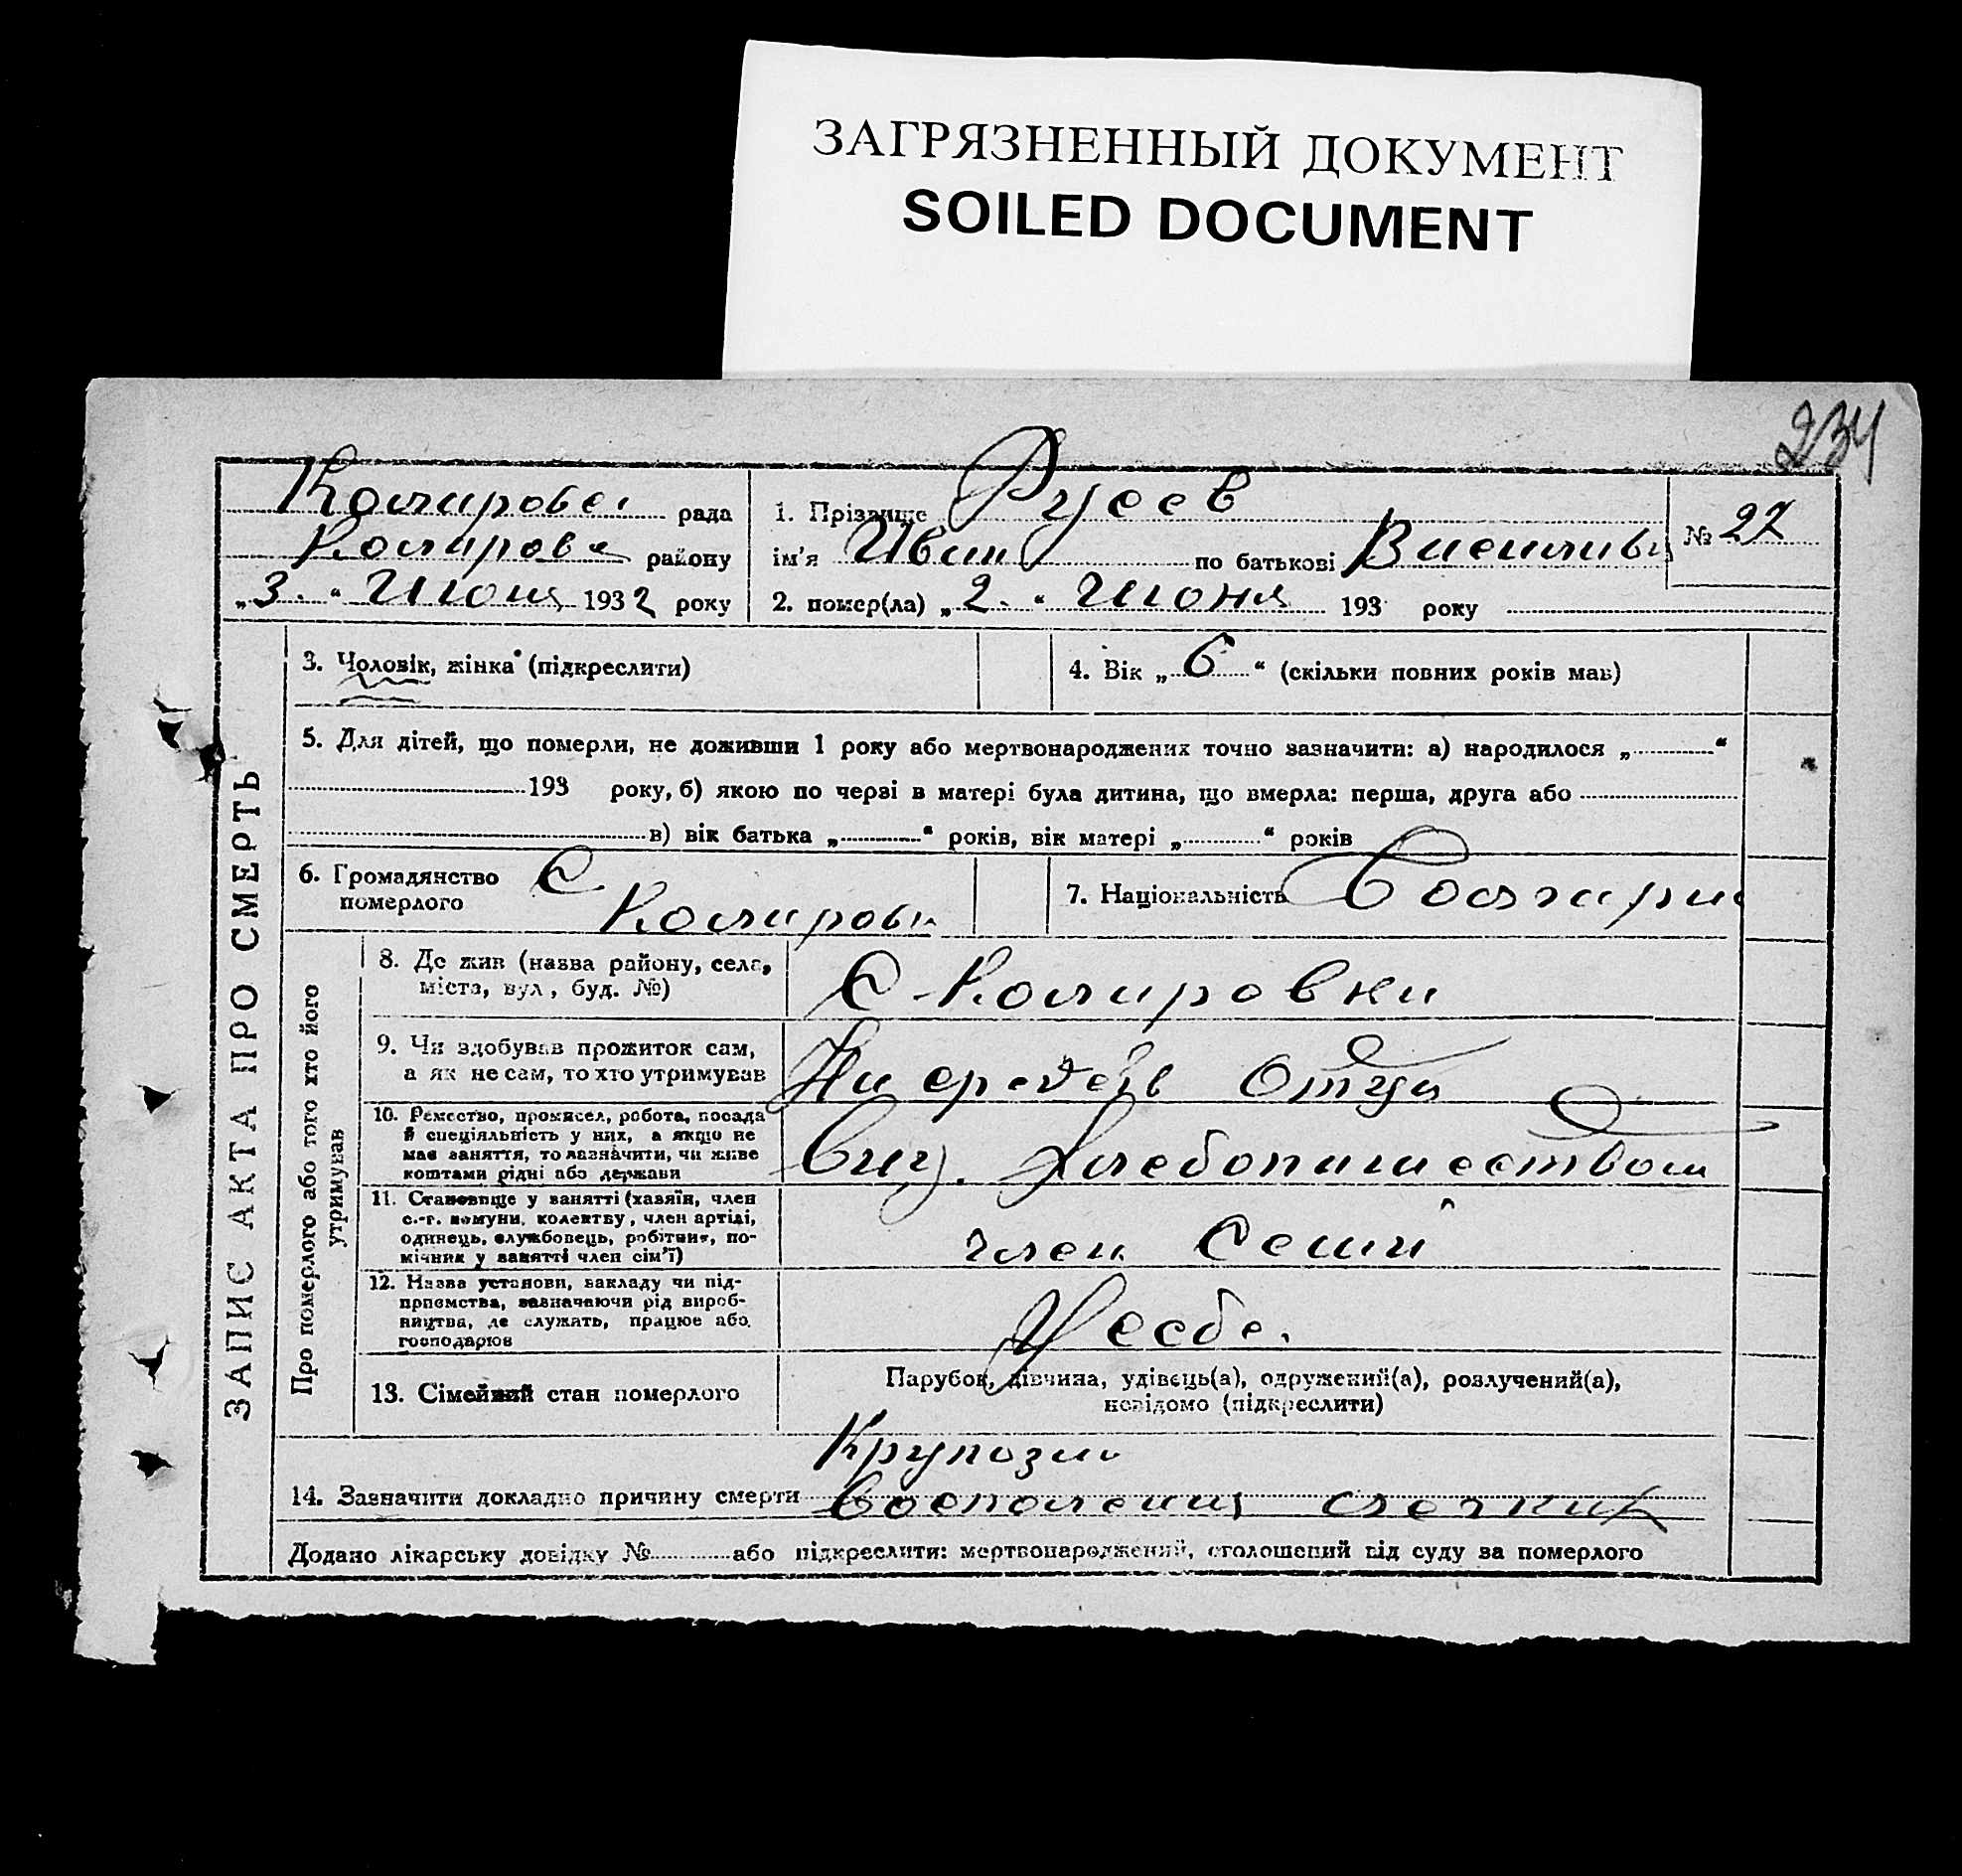 ЗАГРЯЗНЕННЫЙ ДОКУМЕНТ
SOILED DOCUMENT
234
Коларовск рада
Коларовс району
„3“ Июня 1932 року
1. Прізвище Русев
ім'я Иван по батькові Василиев
№ 27
2. помер(ла) „2.“ Июня 193 року
ЗАПИС АКТА ПРО СМЕРТЬ
3. Чоловік, жінка (підкреслити)
4. Вік „6“ (скільки повних років мав)
5. Для дітей, що померли, не доживши 1 року або мертвонароджених точно зазначити: а) народилося „ “
193 року, б) якою по черзі в матері була дитина, що вмерла: перша, друга або
в) вік батька „ “ років, вік матері „ “ років
6. Громадянство
померлого
С
Коларовк
7. Національність Болгарин
Про померлого або того хто його
утримував
8. Де жив (назва району, села,
міста, вул, буд. №)
С Коларовки
9. Чи здобував прожиток сам,
а як не сам, то хто утримував
На средств Отца
10. Ремество, промисел, робота, посада
й спеціяльність у них, а якщо не
має заняття, то зазначити, чи живе
коштами рідні або держави
Хлебопашеством
11. Становище у занятті (хазяїн, член
с.-г. комуни, колектву, член артілі,
одинець, службовець, робітник, по-
мічник у занятті член сім'ї)
член Семи
12. Назва установи, закладу чи під-
приємства, зазначаючи рід вироб-
ництва, де служать, працює або
господарює
13. Сімейний стан померлого
Парубок, дівчина, удівець(а), одружений(а), розлучений(а),
невідомо (підкреслити)
Крупозно
14. Зазначити докладно причину смерти воспаления легких
Додано лікарську довідку № або підкреслити: мертвонароджений, оголошений від суду за померлого